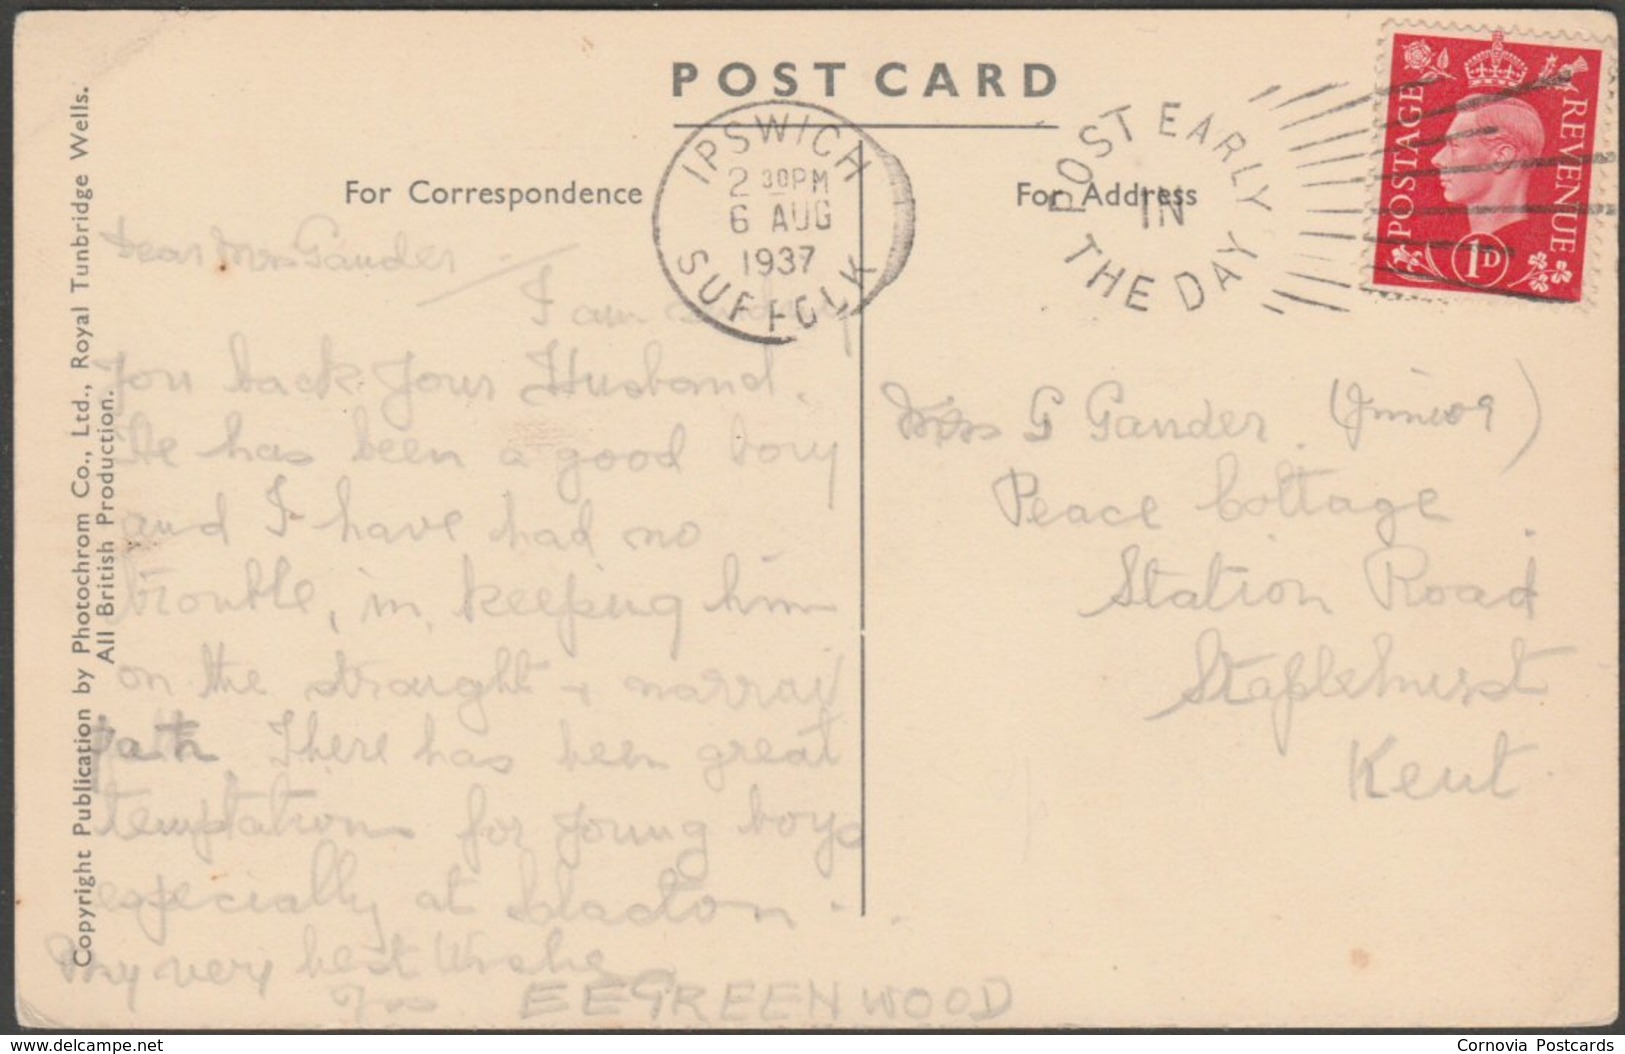 POST CARD
For Correspondence
For Address
IPSWICH
2 30PM
6 AUG
1937
SUFFOLK
POST EARLY
IN
THE DAY
POSTAGE
REVENUE
1D
Copyright Publication by Photochrom Co., Ltd., Royal Tunbridge Wells.
All British Production.
Dear Mrs Gander
I am sending
you back your Husband.
He has been a good boy
and I have had no
trouble, in keeping him
on the straight + narrow
path There has been great
temptations for young boys
especially at Clacton
My very best Wishes
EEGREENWOOD
Mrs G Gander (Junior)
Peace Cottage
Station Road
Staplehurst
Kent
www.delcampe.net
Cornovia Postcards